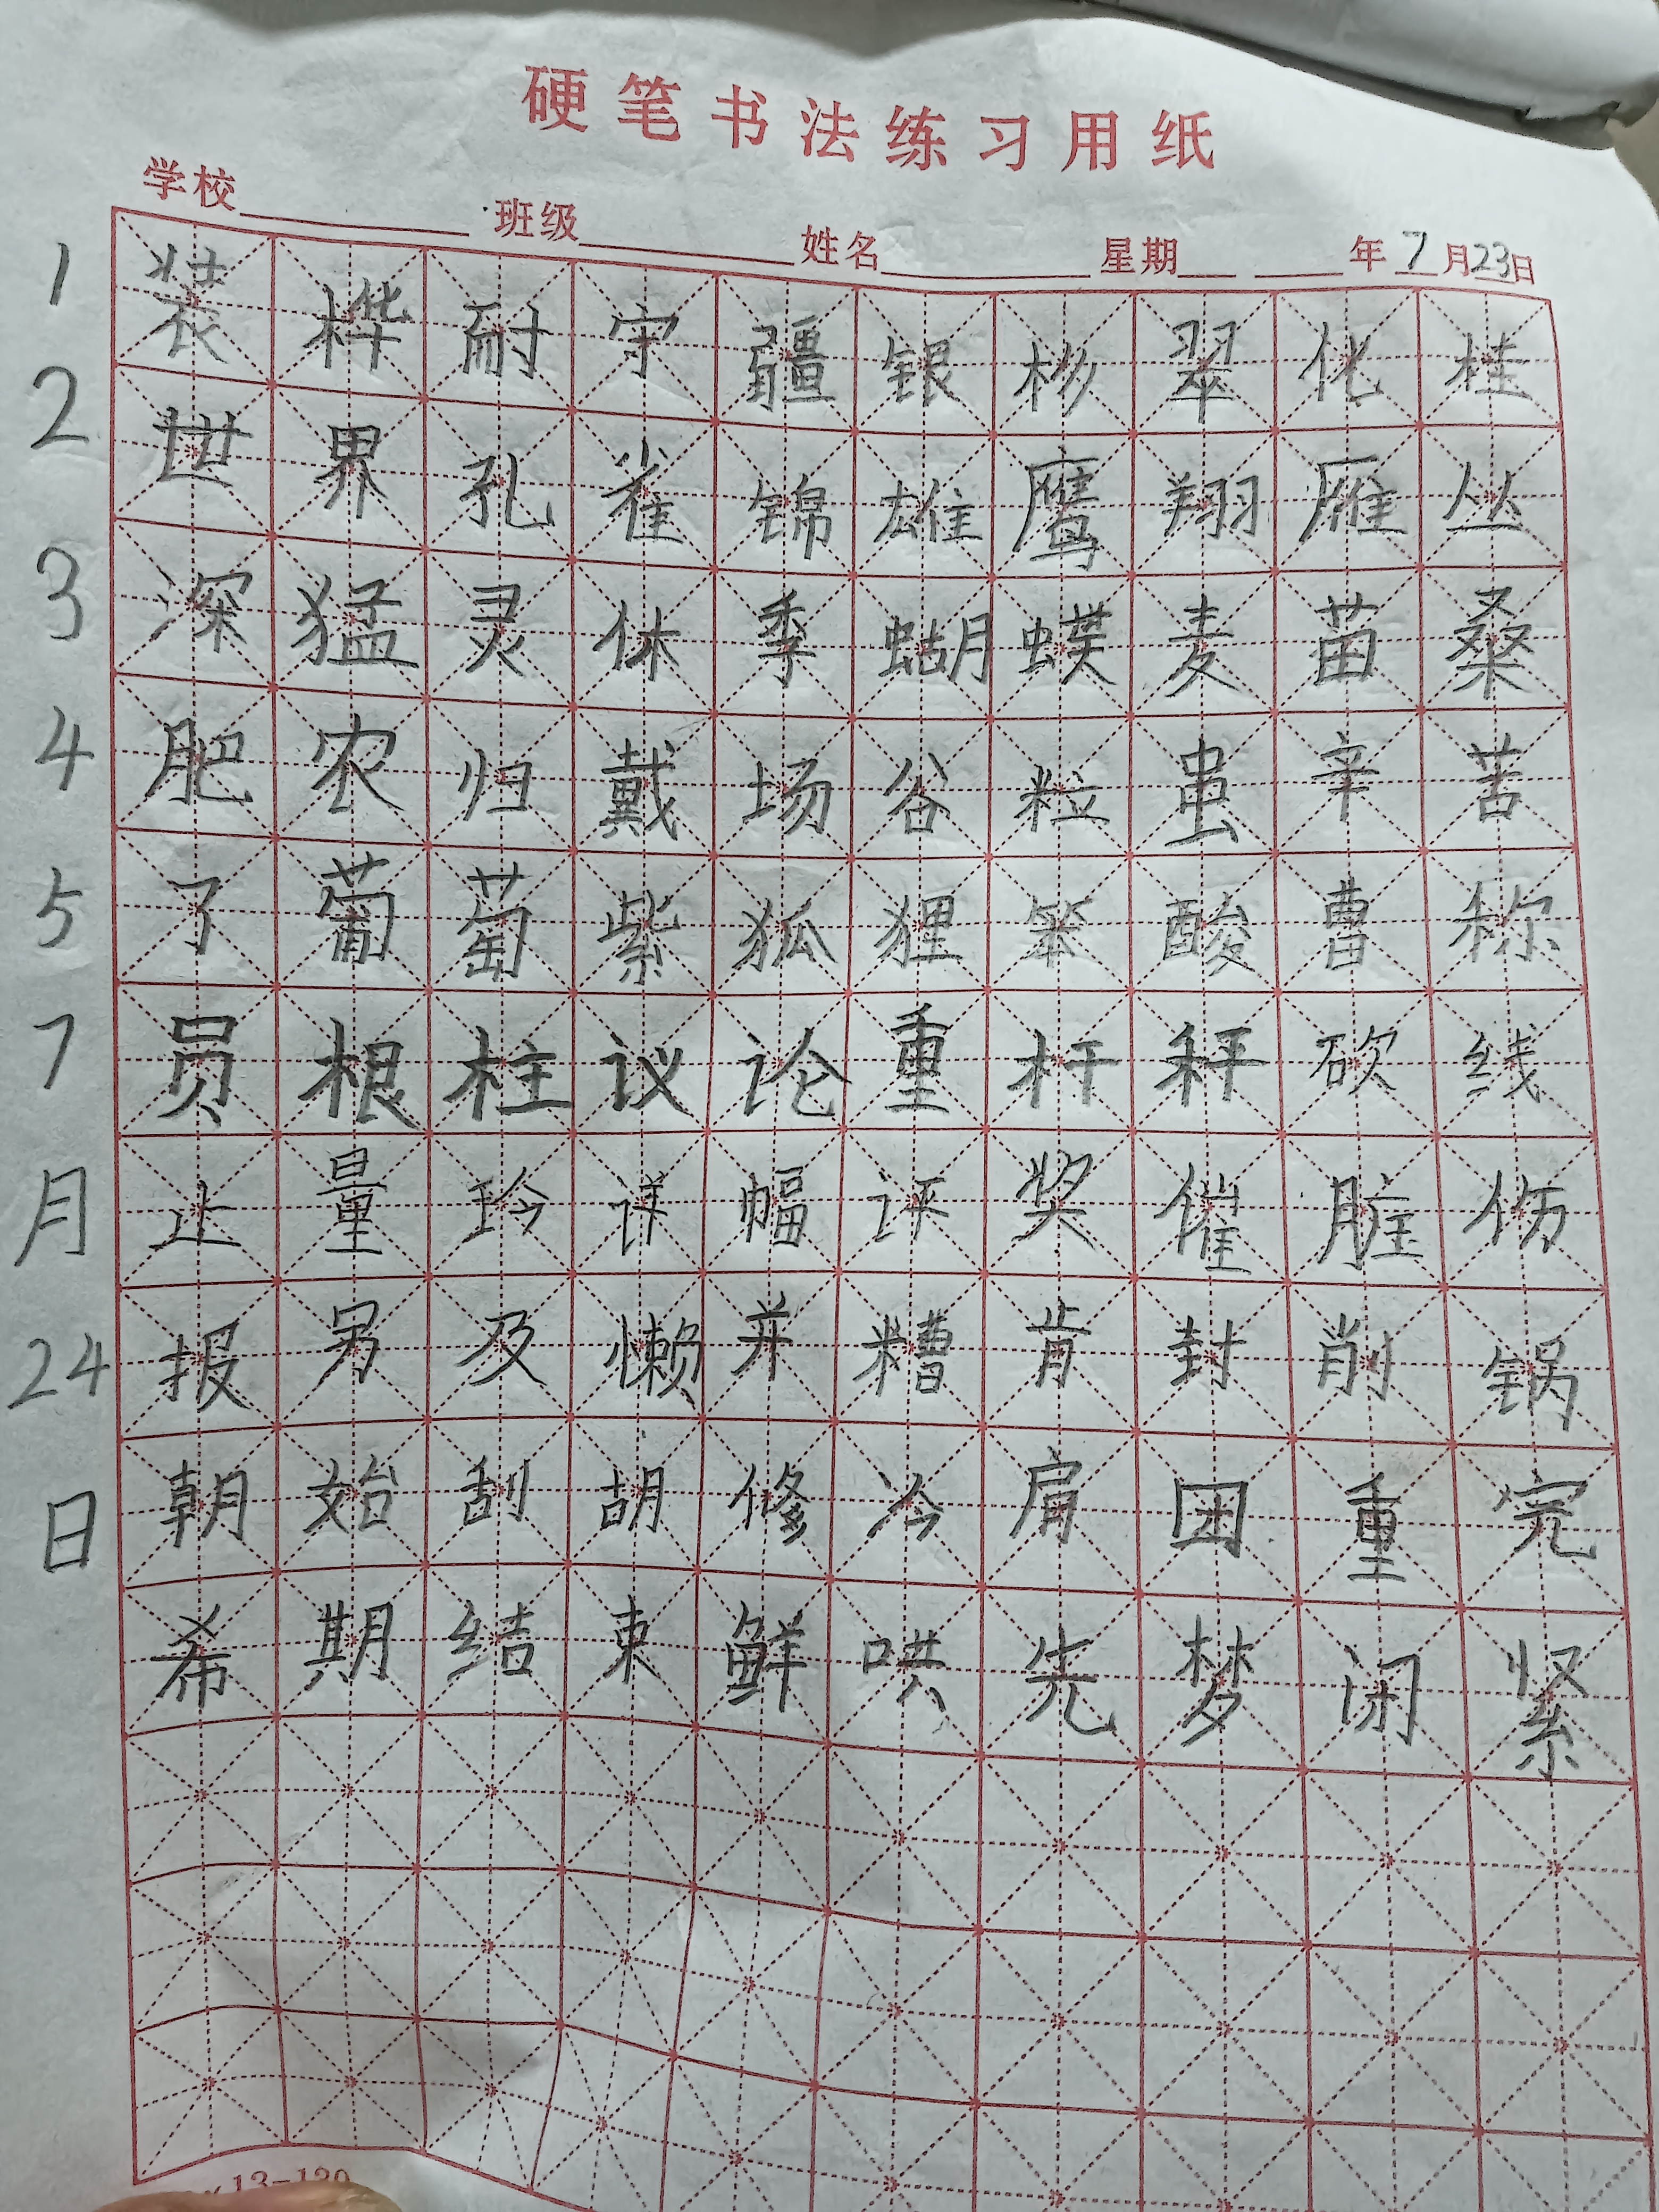 硬笔书法练习用纸
学校 班级 姓名 星期 年7月23日
1 装桦耐守疆银杉翠化桂
2 世界孔雀锦雄鹰翔雁丛
3 深猛灵休季蝴蝶麦苗桑
4 肥农归戴场谷粒虽辛苦
5 了葡萄紫狐狸笨酸曹称
7 员根柱议论重杆秤砍线
月 止量玲详幅评奖催脏伤
24 报另及懒并糟肯封削锅
日 朝始刮胡修冷肩团重完
希期结束鲜哄先梦闭紧
13-120